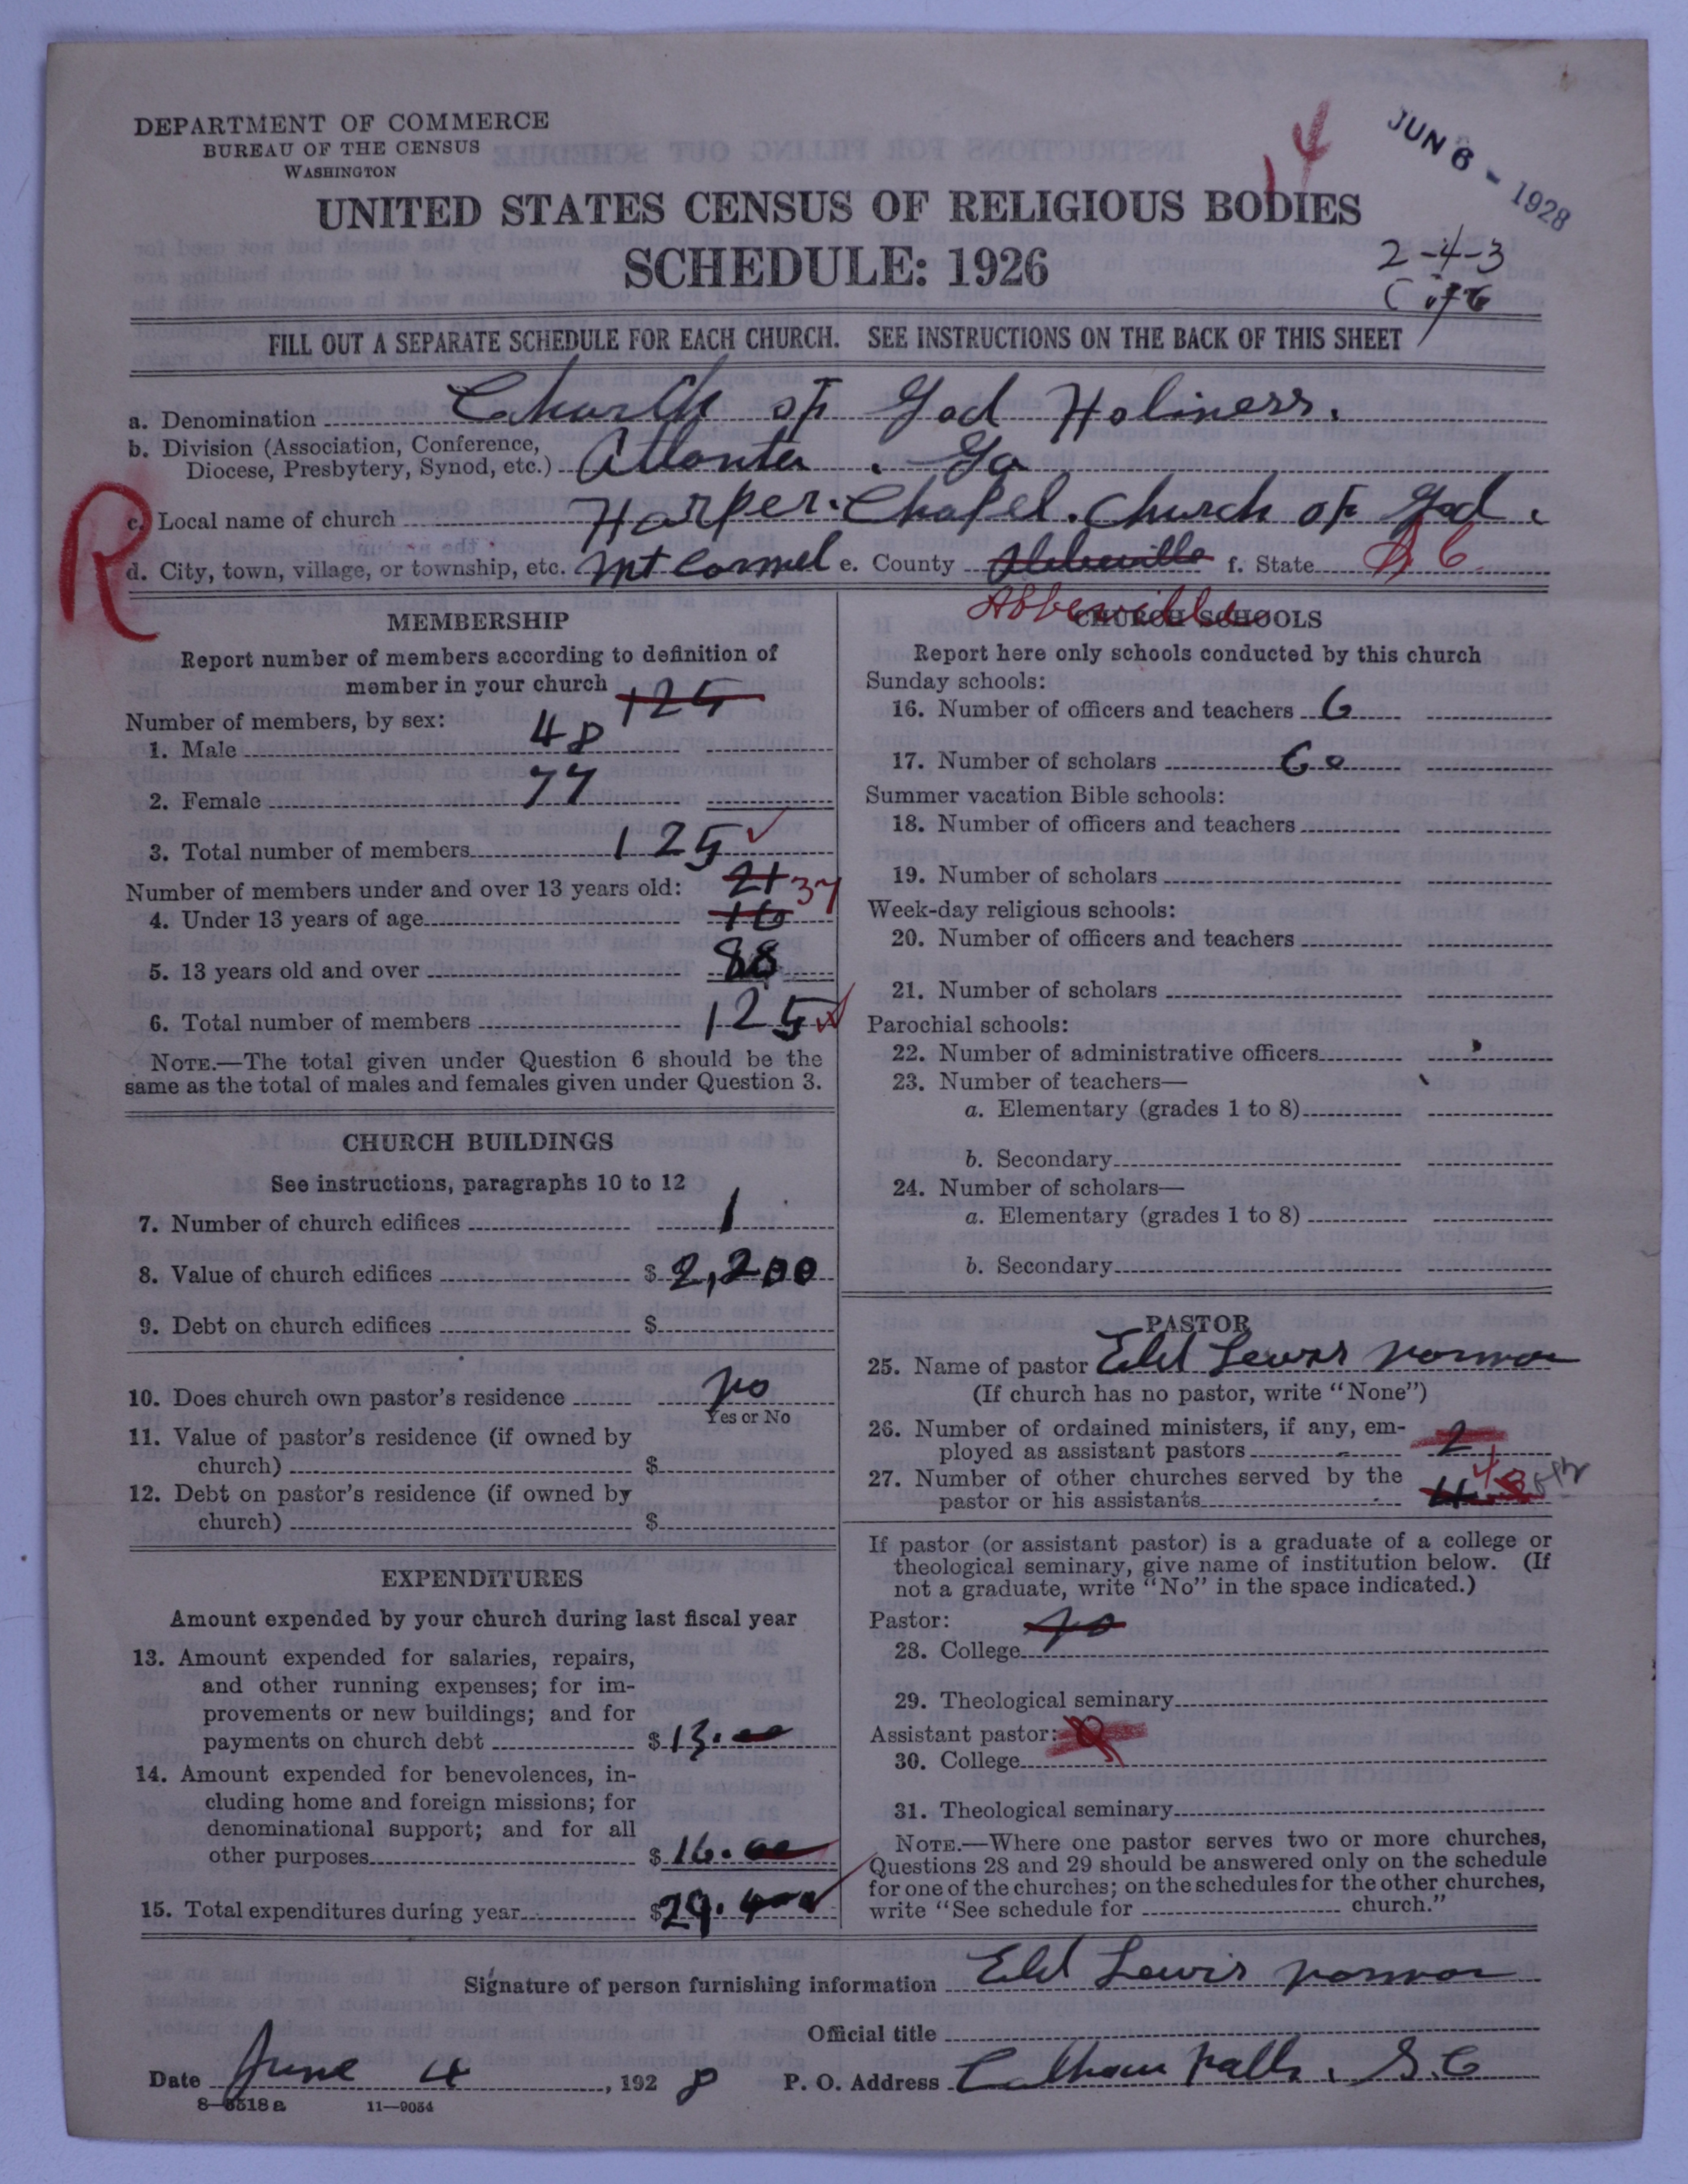 DEPARTMENT OF COMMERCE
BUREAU OF THE CENSUS
WASHINGTON
JUN 6 - 1928
UNITED STATES CENSUS OF RELIGIOUS BODIES
SCHEDULE: 1926
2-4-3
FILL OUT A SEPARATE SCHEDULE FOR EACH CHURCH. SEE INSTRUCTIONS ON THE BACK OF THIS SHEET
a. Denomination Church of God Holiness.
b. Division (Association, Conference,
Diocese, Presbytery, Synod, etc.) Atlanta. Ga
R
c. Local name of church Harper. Chapel. Church of God.
d. City, town, village, or township, etc. Mt Carmel e. County f. State S C
Abbeville
MEMBERSHIP
Report number of members according to definition of
member in your church 125
Number of members, by sex:
1. Male 48
2. Female 77
3. Total number of members 125
Number of members under and over 13 years old: 21 37
4. Under 13 years of age 16
5. 13 years old and over 88
6. Total number of members 125
NOTE.—The total given under Question 6 should be the
same as the total of males and females given under Question 3.
CHURCH BUILDINGS
See instructions, paragraphs 10 to 12
7. Number of church edifices 1
8. Value of church edifices $ 2,200
9. Debt on church edifices $
10. Does church own pastor's residence no
Yes or No
11. Value of pastor's residence (if owned by
church) $
12. Debt on pastor's residence (if owned by
church) $
EXPENDITURES
Amount expended by your church during last fiscal year
13. Amount expended for salaries, repairs,
and other running expenses; for im-
provements or new buildings; and for
payments on church debt $ 13.00
14. Amount expended for benevolences, in-
cluding home and foreign missions; for
denominational support; and for all
other purposes $ 16.00
15. Total expenditures during year $ 29.
CHURCH SCHOOLS
Report here only schools conducted by this church
Sunday schools:
16. Number of officers and teachers 6
17. Number of scholars 60
Summer vacation Bible schools:
18. Number of officers and teachers
19. Number of scholars
Week-day religious schools:
20. Number of officers and teachers
21. Number of scholars
Parochial schools:
22. Number of administrative officers
23. Number of teachers—
a. Elementary (grades 1 to 8)
b. Secondary
24. Number of scholars—
a. Elementary (grades 1 to 8)
b. Secondary
PASTOR
25. Name of pastor Eld Lewis Norman
(If church has no pastor, write "None")
26. Number of ordained ministers, if any, em-
ployed as assistant pastors 2
27. Number of other churches served by the
pastor or his assistants 4
If pastor (or assistant pastor) is a graduate of a college or
theological seminary, give name of institution below. (If
not a graduate, write "No" in the space indicated.)
Pastor:
28. College no
29. Theological seminary
Assistant pastor:
30. College
31. Theological seminary
NOTE.—Where one pastor serves two or more churches,
Questions 28 and 29 should be answered only on the schedule
for one of the churches; on the schedules for the other churches,
write "See schedule for church."
Signature of person furnishing information Eld Lewis Norman
Official title
Date June 4, 1928 P. O. Address Calhoun Falls, S.C
8-6518a 11-9034